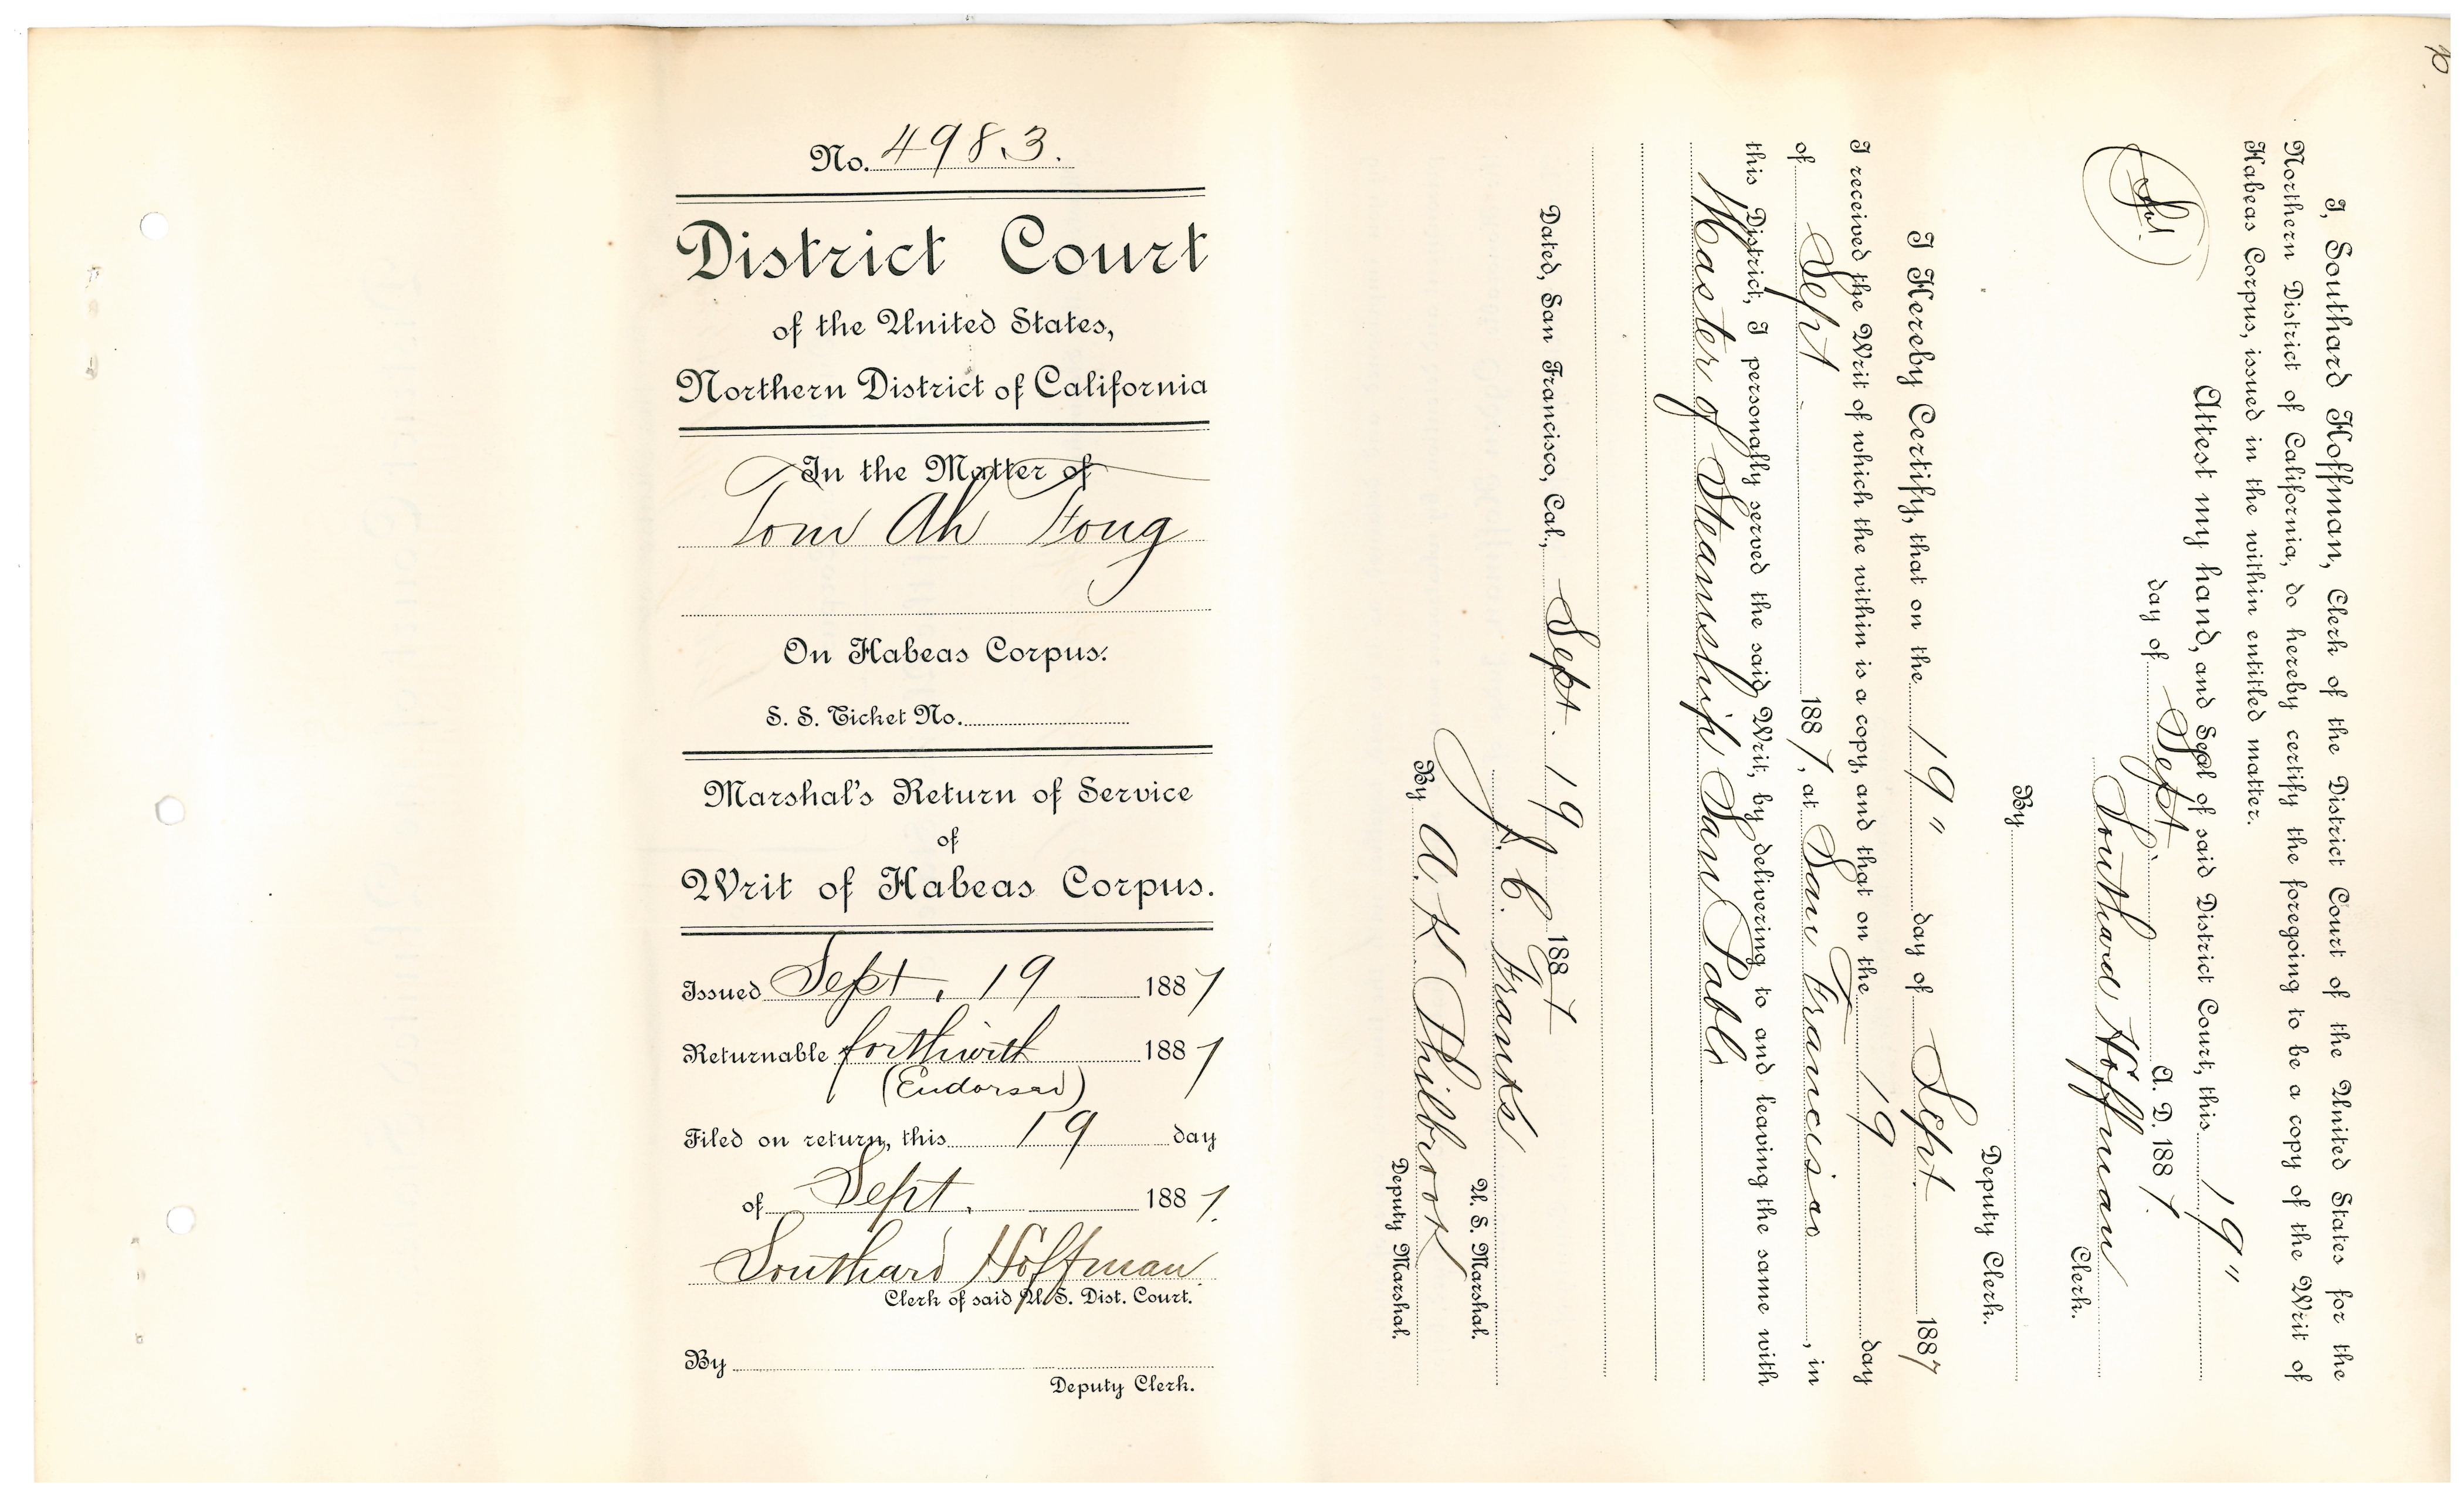 No. 4983.
District Court
of the United States,
Northern District of California
In the Matter of
Tom Ah Fong
On Habeas Corpus.
S. S. Ticket No.
Marshal's Return of Service
of
Writ of Habeas Corpus.
Issued Sept. 19 1887
Returnable forthwith 1887
(Endorsed)
Filed on return, this 19 day
of Sept. 1887.
Southard Hoffman
Clerk of said U. S. Dist. Court.
By
Deputy Clerk.
I, Southard Hoffman, Clerk of the District Court of the United States for the
Northern District of California, do hereby certify the foregoing to be a copy of the Writ of
Habeas Corpus, issued in the within entitled matter.
Attest my hand, and Seal of said District Court, this 19"
day of Sept. A. D. 1887.
Southard Hoffman
Clerk.
By
Deputy Clerk.
I Hereby Certify, that on the 19" day of Sept. 1887
I received the Writ of which the within is a copy, and that on the 19 day
of Sept 1887, at San Francisco, in
this District, I personally served the said Writ, by delivering to and leaving the same with
Master of Steamship San Pablo
Dated, San Francisco, Cal., Sept. 19 1887
J. C. Franks
U. S. Marshal.
By A. K Philbrook
Deputy Marshal.